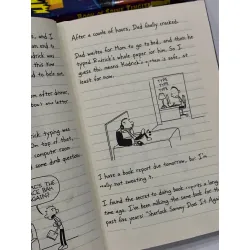 , and I
in the
this row
been in
om after dinner,
about
rick typing was
On top of that,
computer room
some dumb question.
AGAIN?
After a couple of hours, Dad finally cracked.
Dad waited for Mom to go to bed, and then he
typed Rodrick's whole paper for him. So I
guess this means Rodrick's system is safe, at
least for now.
I have a book report due tomorrow, but I'm
really not sweating it.
I found the secret to doing book reports a long
time ago. I've been milking the same book for the
past five years: "Sherlock Sammy Does It Again."